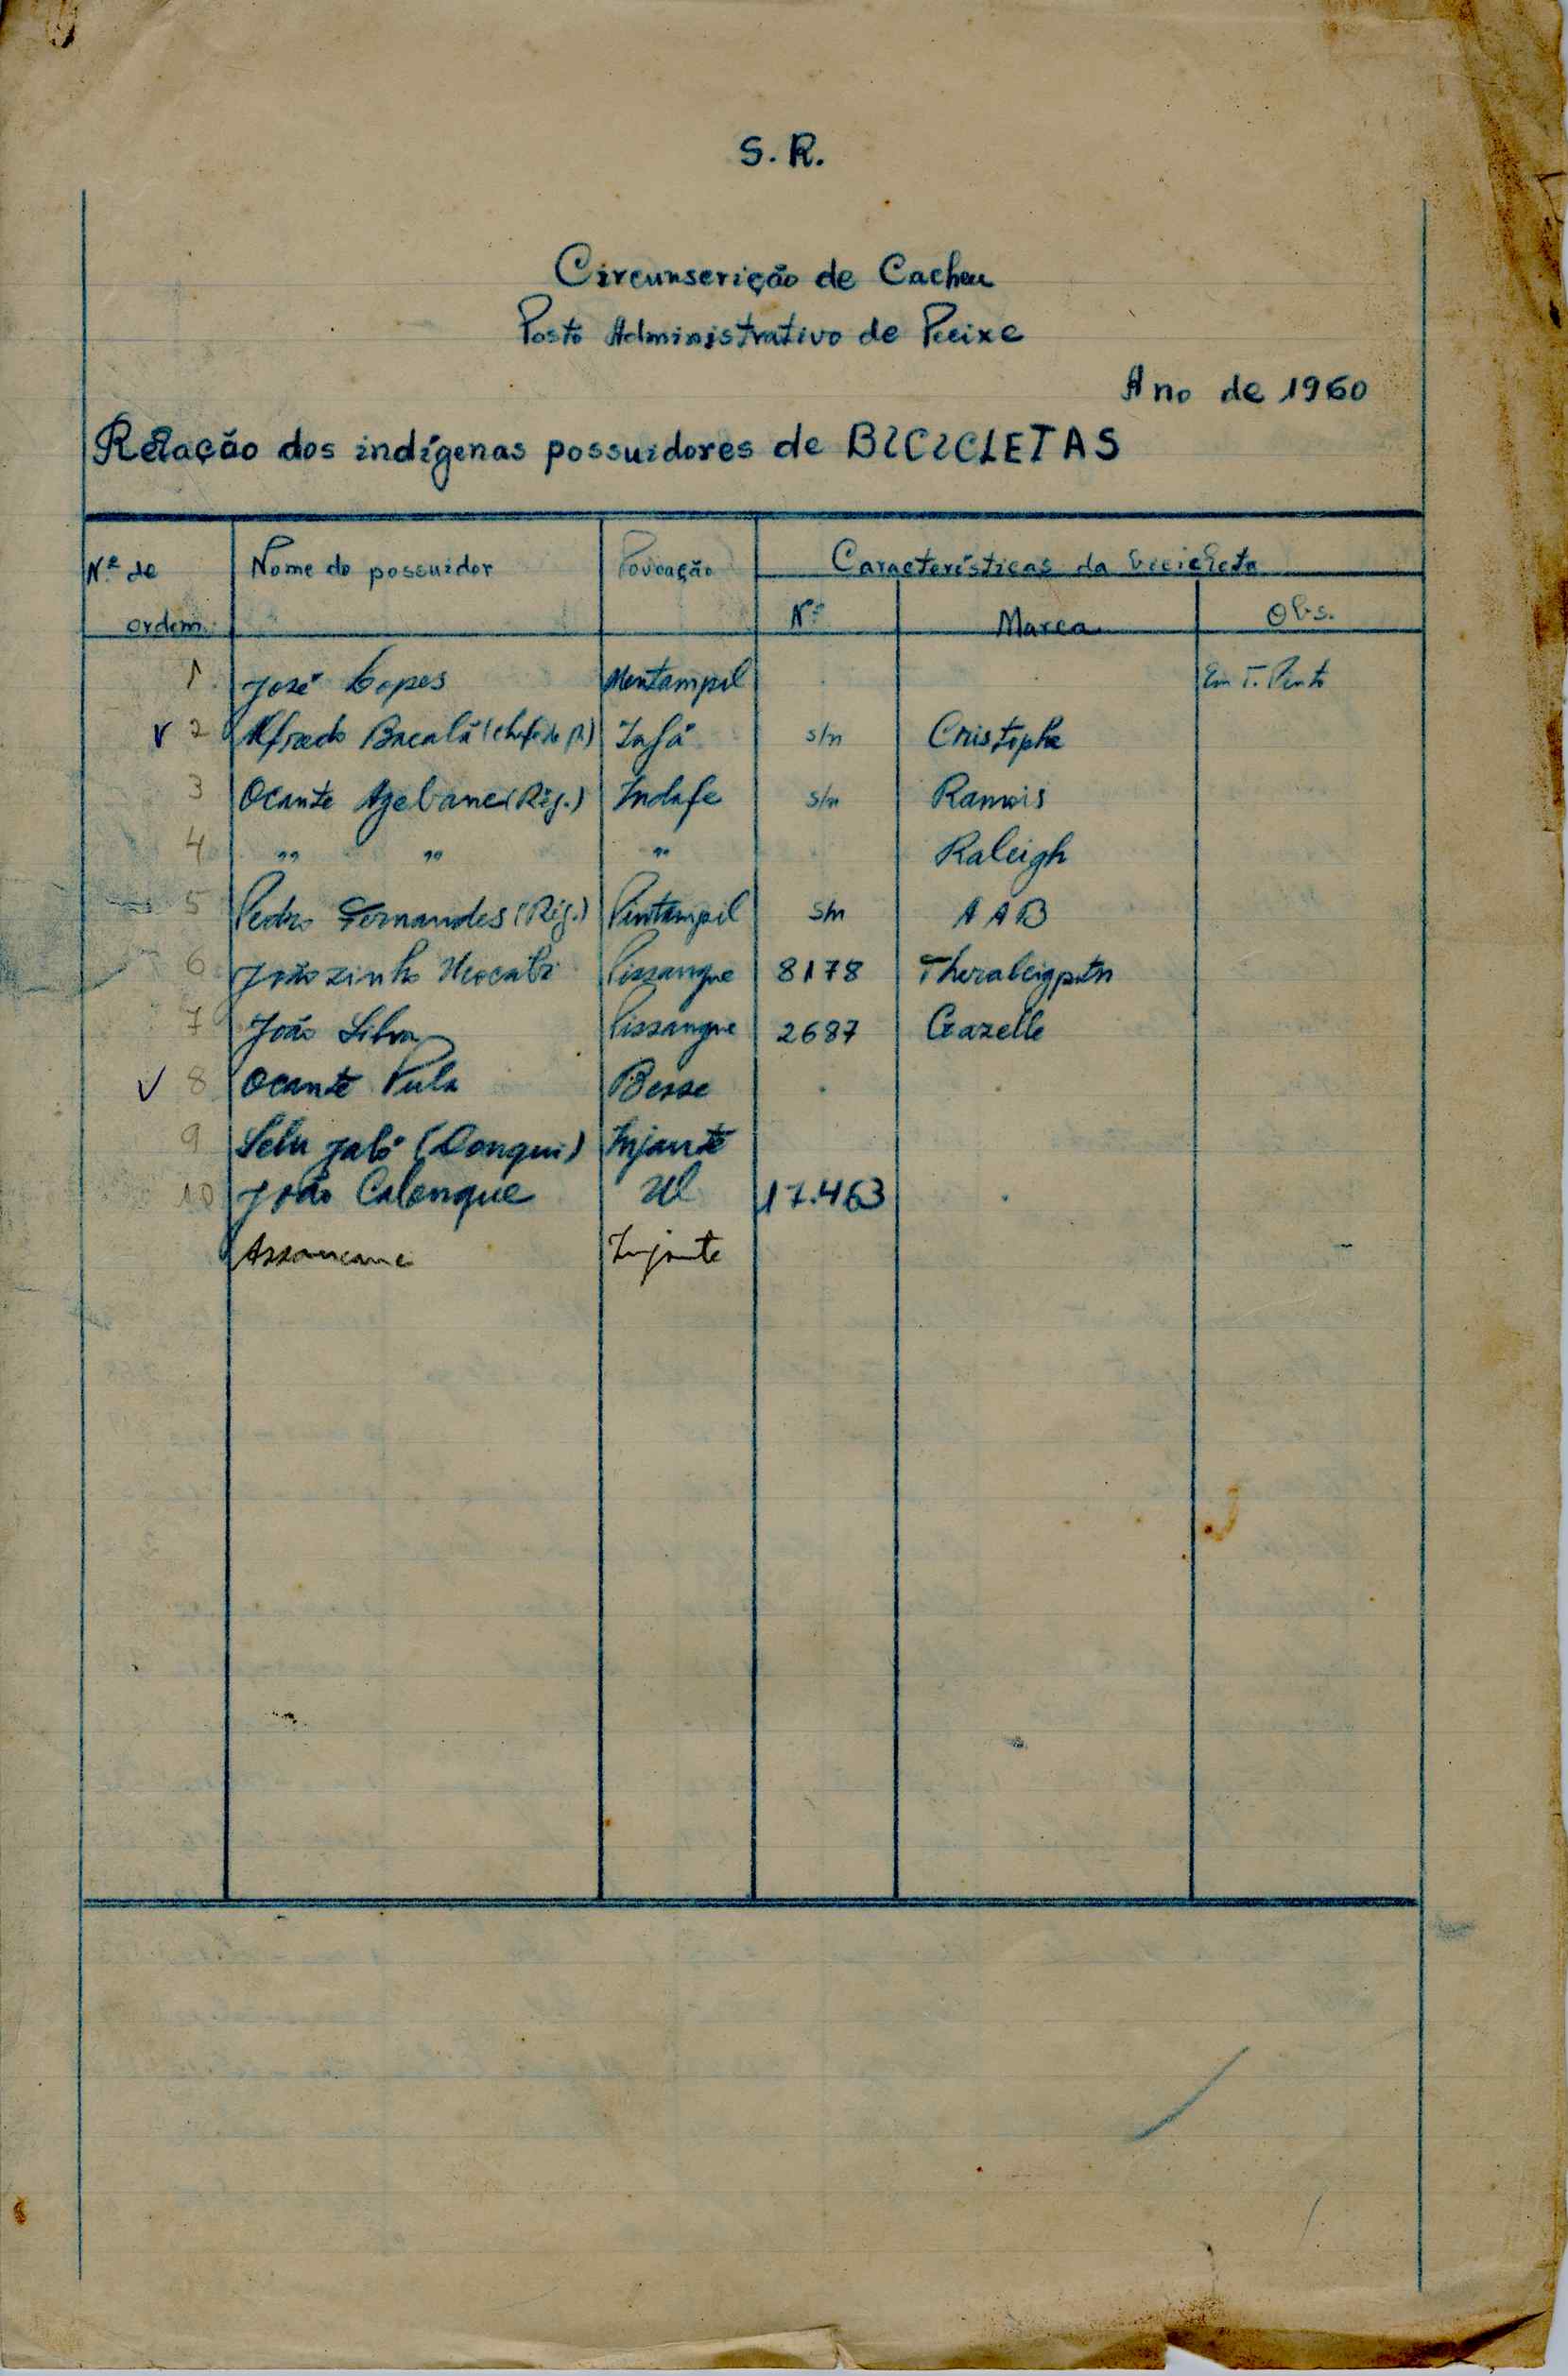 S. R.
Circunscrição de Cacheu
Posto Administrativo de Pecixe
Ano de 1960
Relação dos indígenas possuidores de BICICLETAS
Nº de ordem Nome do possuidor Povoação Características da bicicleta
Nº Marca Obs.
1 José Lopes Mentampil Em T. Pinto
v 2 Alfredo Bacalá (chefe de p.) Jafá s/n Cristophe
3 Ocante (Rég.) Indafe s/n Ramis
4 " " " Raleigh
5 Pedro Fernandes (Rég.) Pintampil s/n A A B
6 Joãozinho Pissangue 8178
7 João Silva Pissangue 2687 Gazelle
v 8 Ocante Pula Besse
9 Selu Jaló (Donqui) Injante
10 João Calenque Ul 17.463
Assancane Injante